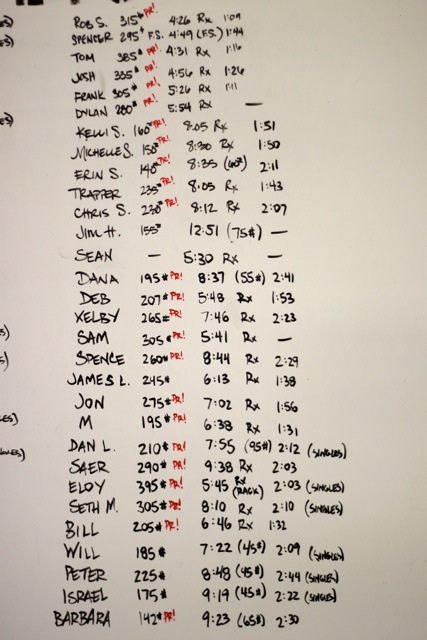 ROB S. 315# PR! 4:26 Rx 1:09
SPENCER 295# F.S. 4:49 (F.S.) 1:44
TOM 385# PR! 4:31 Rx 1:16
JOSH 335# PR! 4:56 Rx 1:26
FRANK 305# PR! 5:26 Rx 1:11
DYLAN 280# PR! 5:54 Rx —
KELLI S. 160# PR! 8:05 Rx 1:51
MICHELLE S. 150# PR! 8:30 Rx 1:50
ERIN S. 140# PR! 8:35 (60#) 2:11
TRAPPER 235# PR! 8:05 Rx 1:43
CHRIS S. 230# PR! 8:12 Rx 2:07
JIM H. 155# 12:51 (75#) —
SEAN — 5:30 Rx —
DANA 195# PR! 8:37 (55#) 2:41
DEB 207# PR! 5:48 Rx 1:53
KELBY 265# PR! 7:46 Rx 2:23
SAM 305# PR! 5:41 Rx —
SPENCE 260# PR! 8:44 Rx 2:29
JAMES L. 245# 6:13 Rx 1:38
JON 275# PR! 7:02 Rx 1:56
M 195# PR! 6:38 Rx 1:31
DAN L. 210# PR! 7:55 (95#) 2:12 (SINGLES)
SAER 290# PR! 9:38 Rx 2:03
ELOY 395# PR! 5:45 Rx (RACK) 2:03 (SINGLES)
SETH M. 305# PR! 8:10 Rx 2:10 (SINGLES)
BILL 205# PR! 6:46 Rx 1:32
WILL 185# 7:22 (45#) 2:09 (SINGLES)
PETER 225# 8:48 (45#) 2:44 (SINGLES)
ISRAEL 175# 9:19 (45#) 2:22 (SINGLES)
BARBARA 142# PR! 9:23 (65#) 2:30